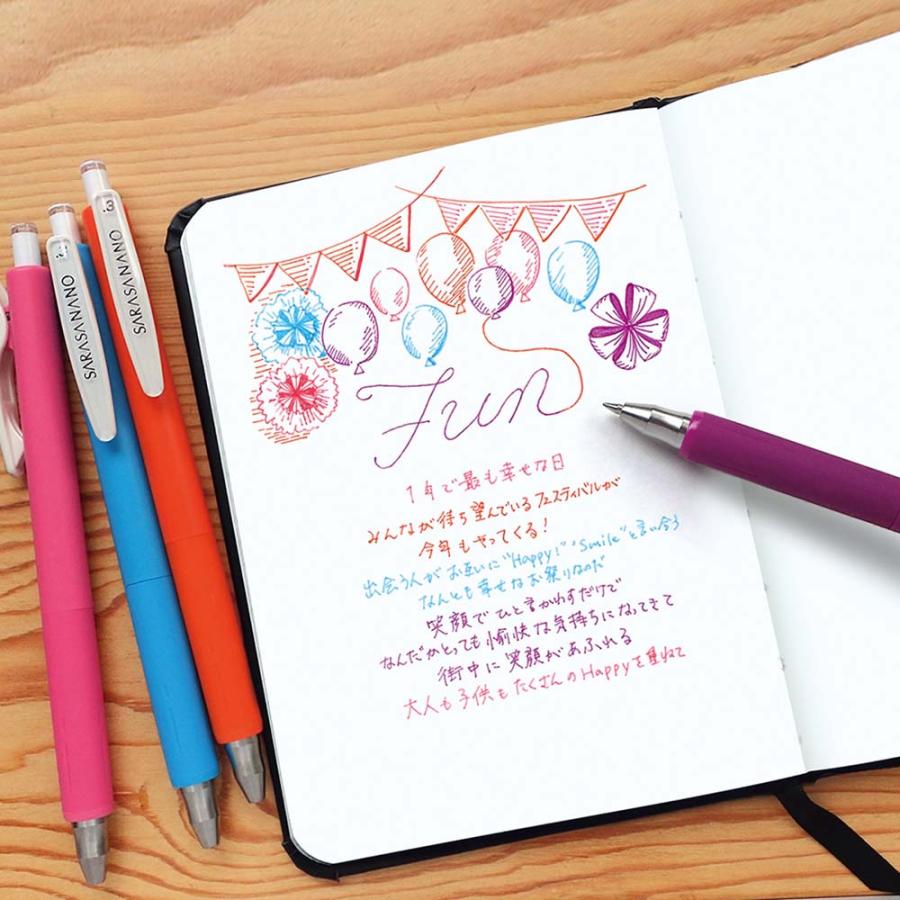 SARASANANO
.3
SARASANANO
.3
Fun
1年で最も幸せな日
みんなが待ち望んでいるフェスティバルが
今年もやってくる!
出会う人がお互いに"Happy!""Smile"と言い合う
なんとも幸せなお祭りなのだ
笑顔でひと言かわすだけで
なんだかとっても愉快な気持ちになってきて
街中に笑顔があふれる
大人も子供もたくさんのHappyを重ねて